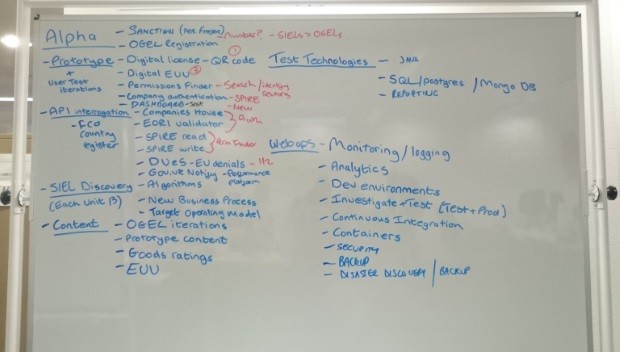 Alpha - SANCTION (Perm. Finder) - number? - SIELS > OGELs
- OGEL Registration
- Prototype - Digital license - QR code ①
+ User Test iterations
- Digital EUU
- Permissions Finder - Search/identity
- Company authentication - SPIRE
- DASHBOARD - New
- API interrogation - Companies House
- FCO Country register
- EORI validator
- SPIRE read
- SPIRE write
- DVeS - EU denials
- Gov.uk Notify - Performance platform
- SIEL Discovery - Algorithms
(Each Unit B)
- New Business Process
- Target Operating Model
- Content - OGEL iterations
- Prototype content
- Goods ratings
- EUU
Test Technologies
- SQL/postgres / Mongo DB
- REPORTING
Webops - Monitoring/logging
- Analytics
- Dev environments
- Investigate + Test (Test + Prod)
- Continuous Integration
- Containers
- Security
- BACKUP
- DISASTER DISCOVERY / BACKUP